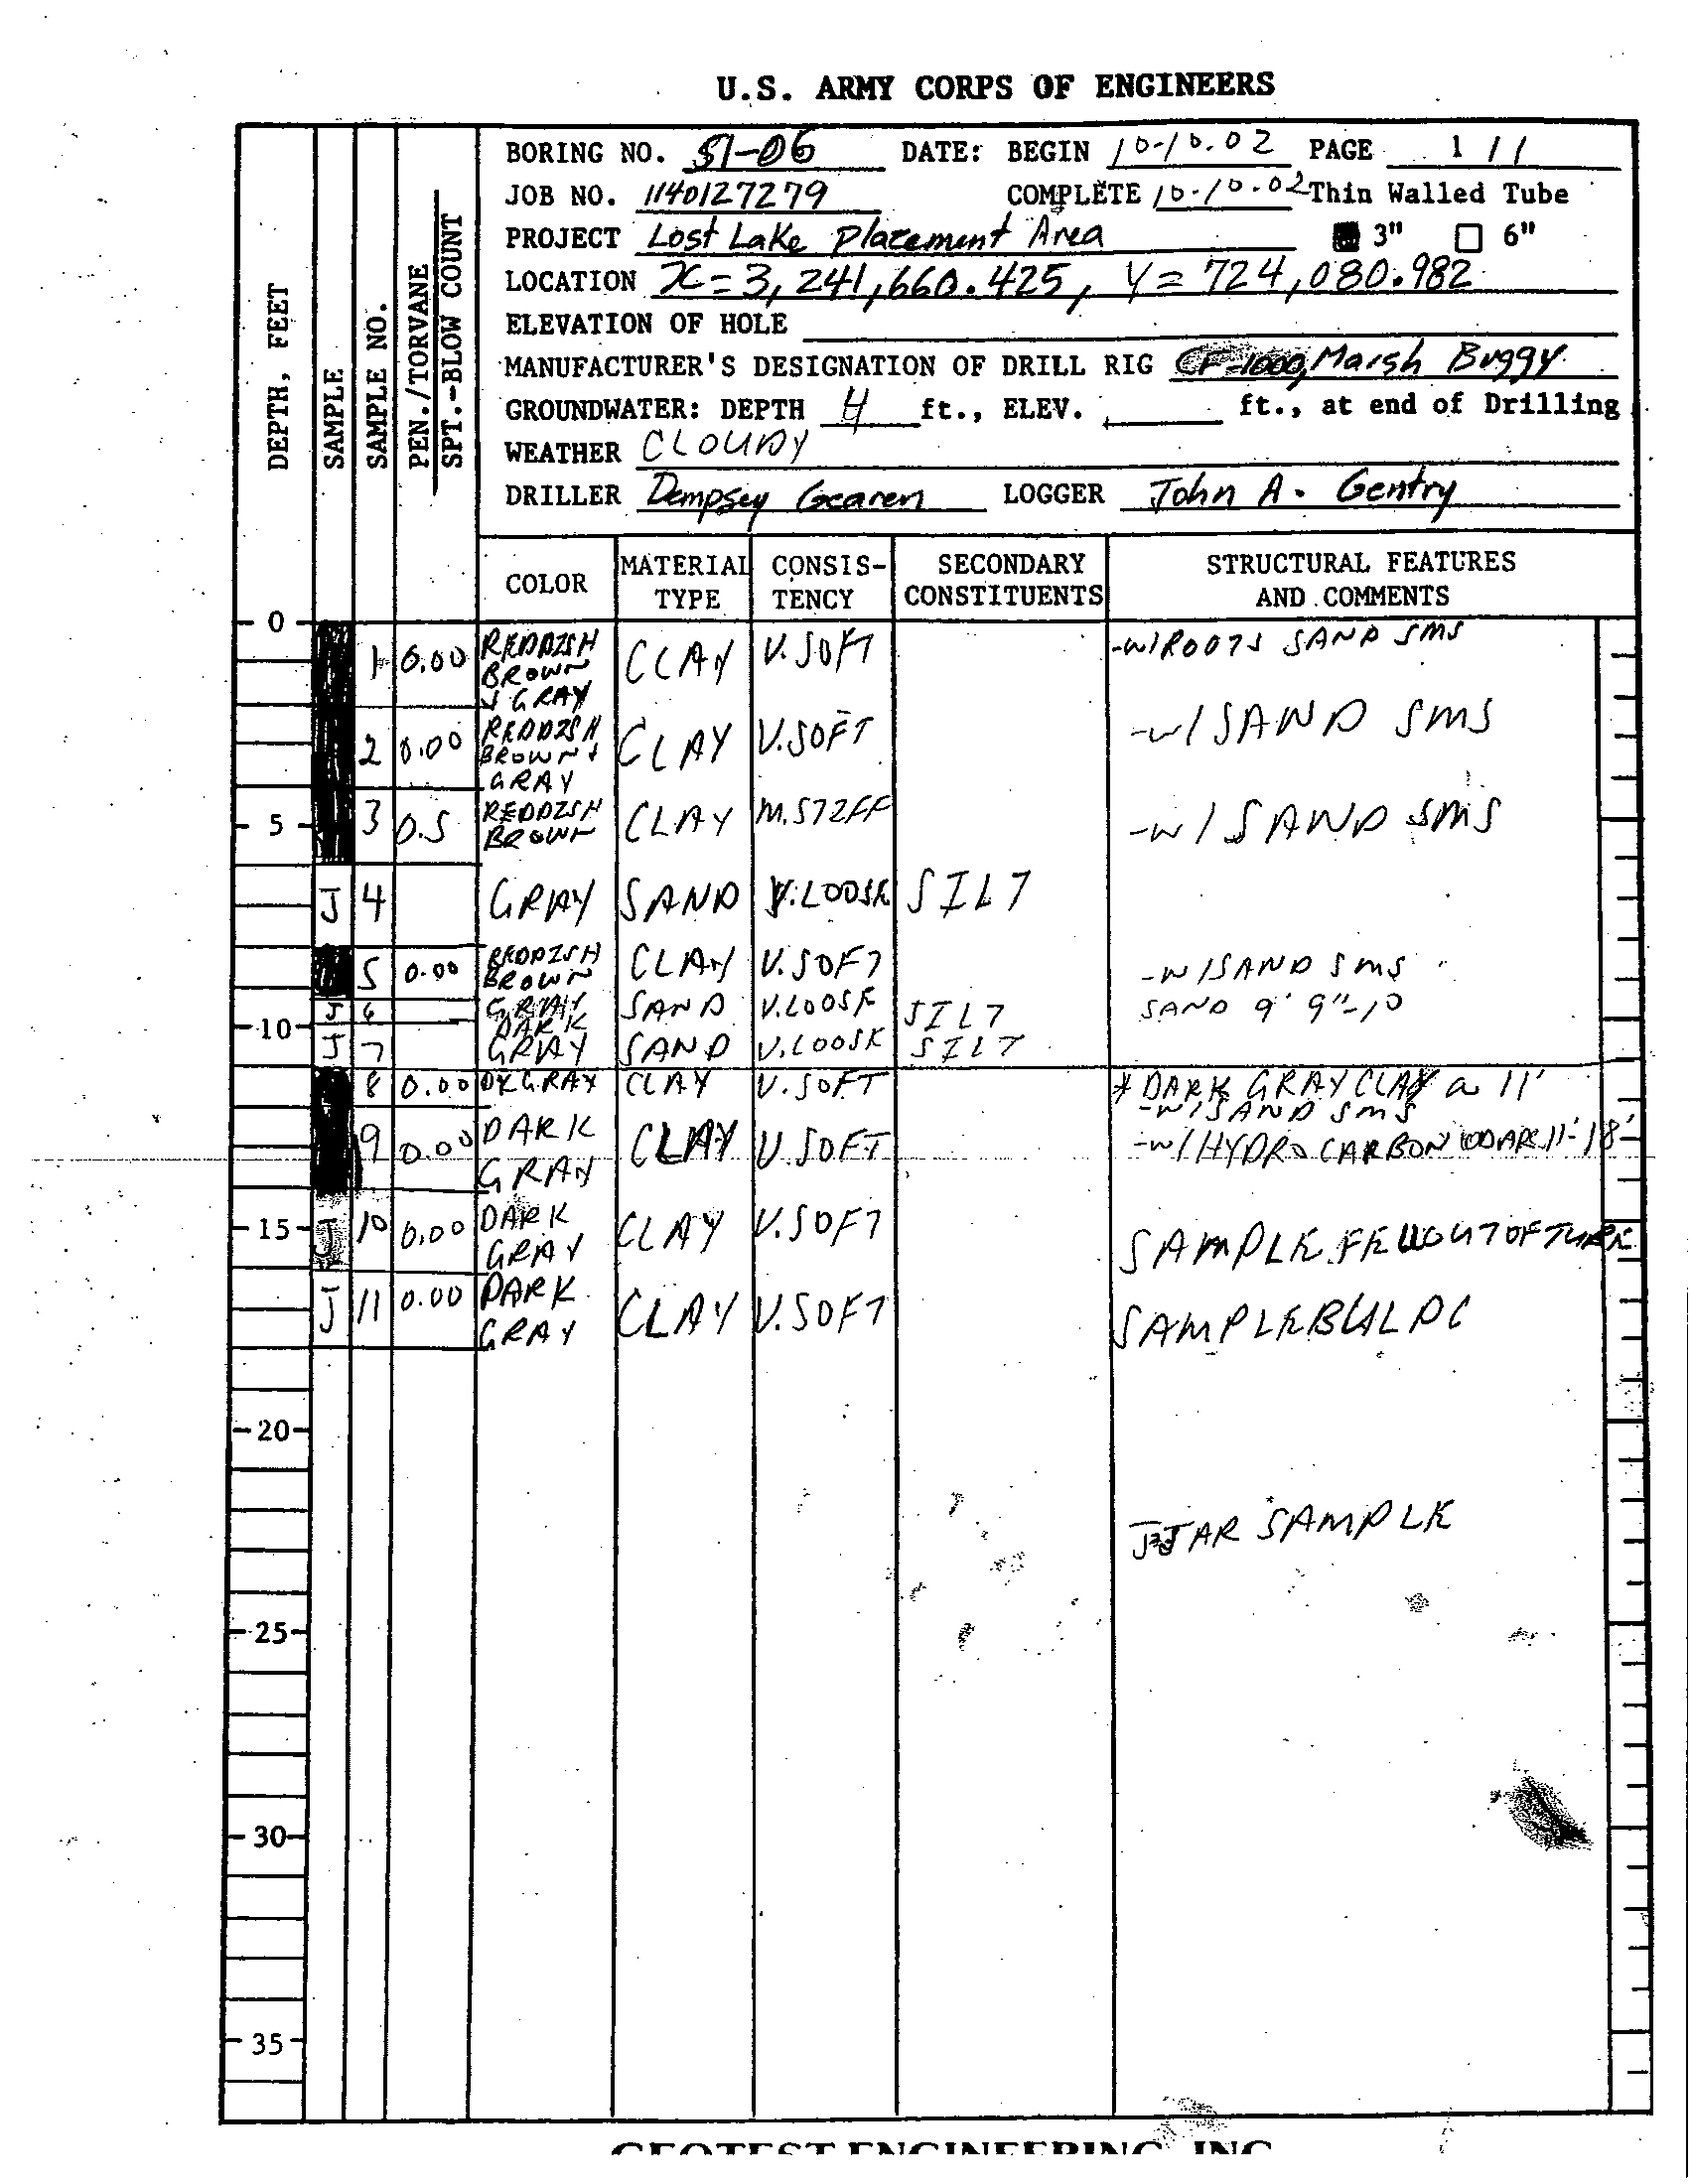 U.S. ARMY CORPS OF ENGINEERS
DEPTH, FEET
SAMPLE
SAMPLE NO.
PEN./TORVANE
SPT.-BLOW COUNT
BORING NO. S1-06 DATE: BEGIN 10-10.02 PAGE 1 / 1
JOB NO. 1140127279 COMPLETE 10-10.02 Thin Walled Tube
PROJECT Lost Lake Placement Area 3" 6"
LOCATION X=3,241,660.425, Y=724,080.982
ELEVATION OF HOLE
MANUFACTURER'S DESIGNATION OF DRILL RIG CF-1000, Marsh Buggy
GROUNDWATER: DEPTH 4 ft., ELEV. ft., at end of Drilling
WEATHER CLOUDY
DRILLER Dempsey Gearen LOGGER John A. Gentry
COLOR MATERIAL TYPE CONSIS-TENCY SECONDARY CONSTITUENTS STRUCTURAL FEATURES AND COMMENTS
0
1 0.00 REDDISH BROWN & GRAY CLAY V. SOFT -W/ROOTS SAND SMS
2 0.00 REDDISH BROWN & GRAY CLAY V.SOFT -W/SAND SMS
5
3 0.5 REDDISH BROWN CLAY M.STIFF -W/SAND SMS
J 4 GRAY SAND V.LOOSE SILT
5 0.00 REDDISH BROWN CLAY V.SOFT -W/SAND SMS
J 6 GRAY SAND V.LOOSE SILT SAND 9' 9"-10
10
J 7 DARK GRAY SAND V.LOOSE SILT
8 0.00 DK GRAY CLAY V.SOFT * DARK GRAY CLAY @ 11'
-W/SAND SMS
9 0.00 DARK GRAY CLAY V.SOFT -W/HYDROCARBON ODAR 11'-18'
15
J 10 0.00 DARK GRAY CLAY V.SOFT SAMPLE FELL OUT OF TUBE
J 11 0.00 DARK GRAY CLAY V.SOFT SAMPLE
20
JAR SAMPLE
25
30
35
GEOTEST ENGINEERING, INC